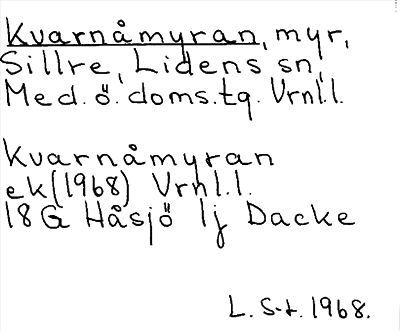 Kvarnåmyran, myr,
Sillre, Lidens sn,
Med. ö. doms.tg. Vrnl.l.
Kvarnåmyran
ek (1968) Vrnl.l.
18 G Håsjö 1j Dacke
L. S-t. 1968.